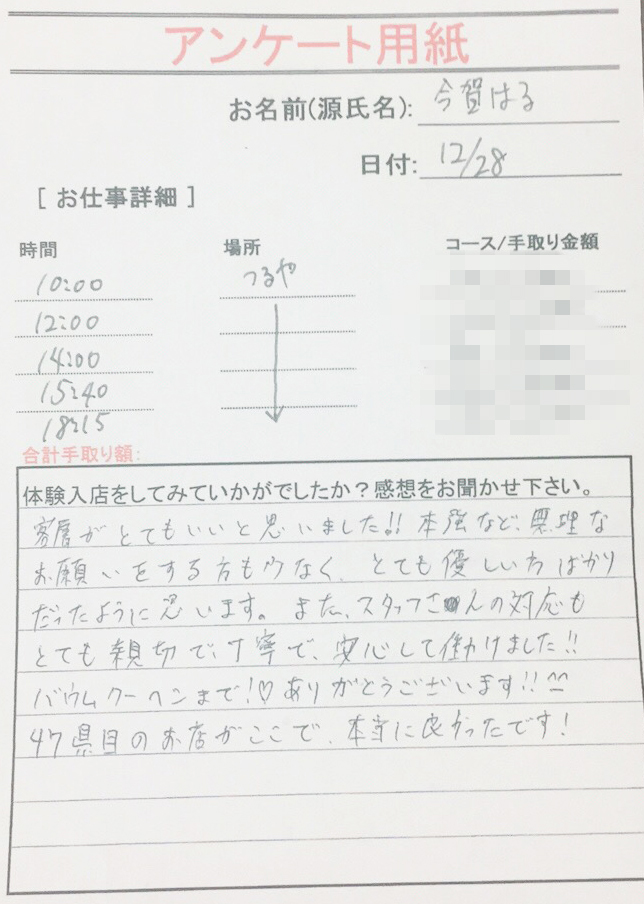 アンケート用紙
お名前(源氏名): 今賀はる
日付: 12/28
[ お仕事詳細 ]
時間 場所 コース/手取り金額
10:00 つるや
12:00
14:00
15:40
18:15
合計手取り額:
体験入店をしてみていかがでしたか？感想をお聞かせ下さい。
客層がとてもいいと思いました!! 本強など、無理な
お願いをする方も少なく、とても優しい方ばかり
だったように思います。また、スタッフさんの対応も
とても親切で、丁寧で、安心して働けました!!
バウムクーヘンまで!♡ありがとうございます!!^^
47県目のお店がここで、本当に良かったです!